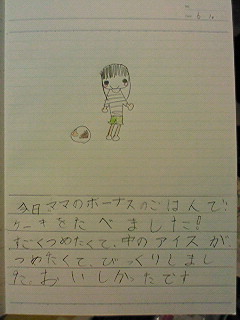 今日、ママのボーナスのごはんで、
ケーキをたべました!
すごくつめたくて、中のアイスが、
つめたくて、びっくりしまし
た。おいしかったです